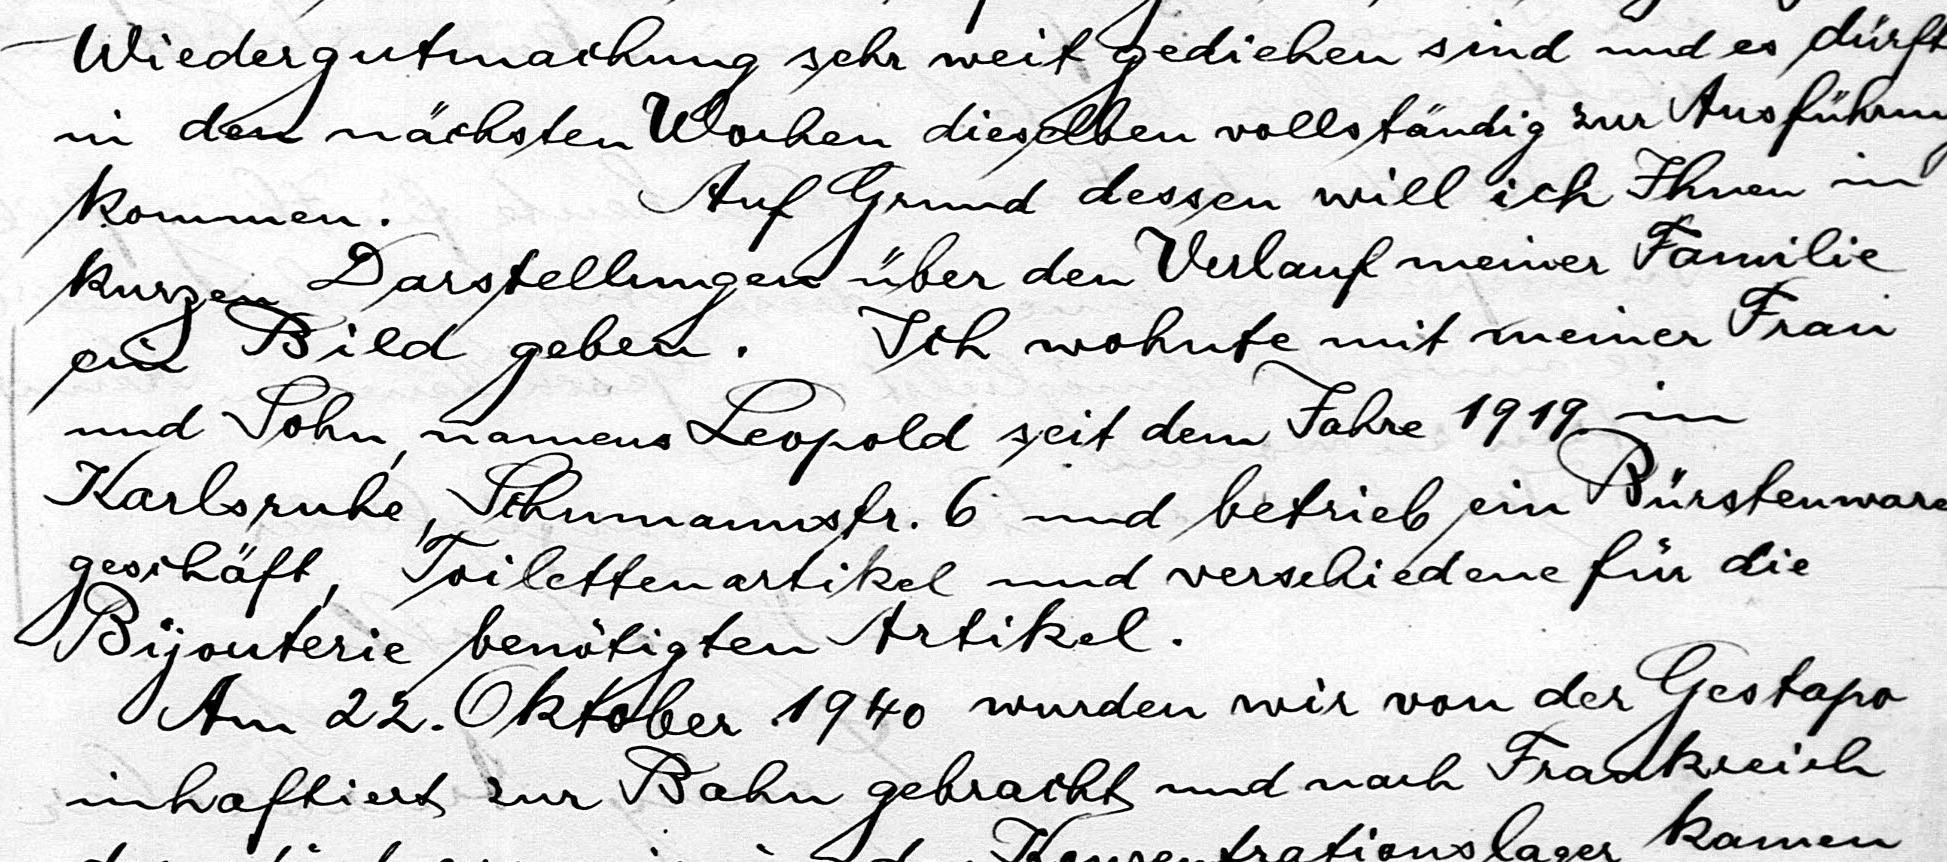 Wiedergutmachung sehr weit gediehen sind und es dürft
in den nächsten Wochen dieselben vollständig zur Ausführung
kommen. Auf Grund dessen will ich Ihnen in
kurzen Darstellungen über den Verlauf meiner Familie
ein Bild geben. Ich wohnte mit meiner Frau
und Sohn, namens Leopold seit dem Jahre 1919 in
Karlsruhe, Schumannstr. 6 und betrieb ein Bürstenware
geschäft, Toilettenartikel und verschiedene für die
Bijouterie benötigten Artikel.
Am 22. Oktober 1940 wurden wir von der Gestapo
inhaftiert, zur Bahn gebracht, und nach Frankreich
Konzentrationslager kamen